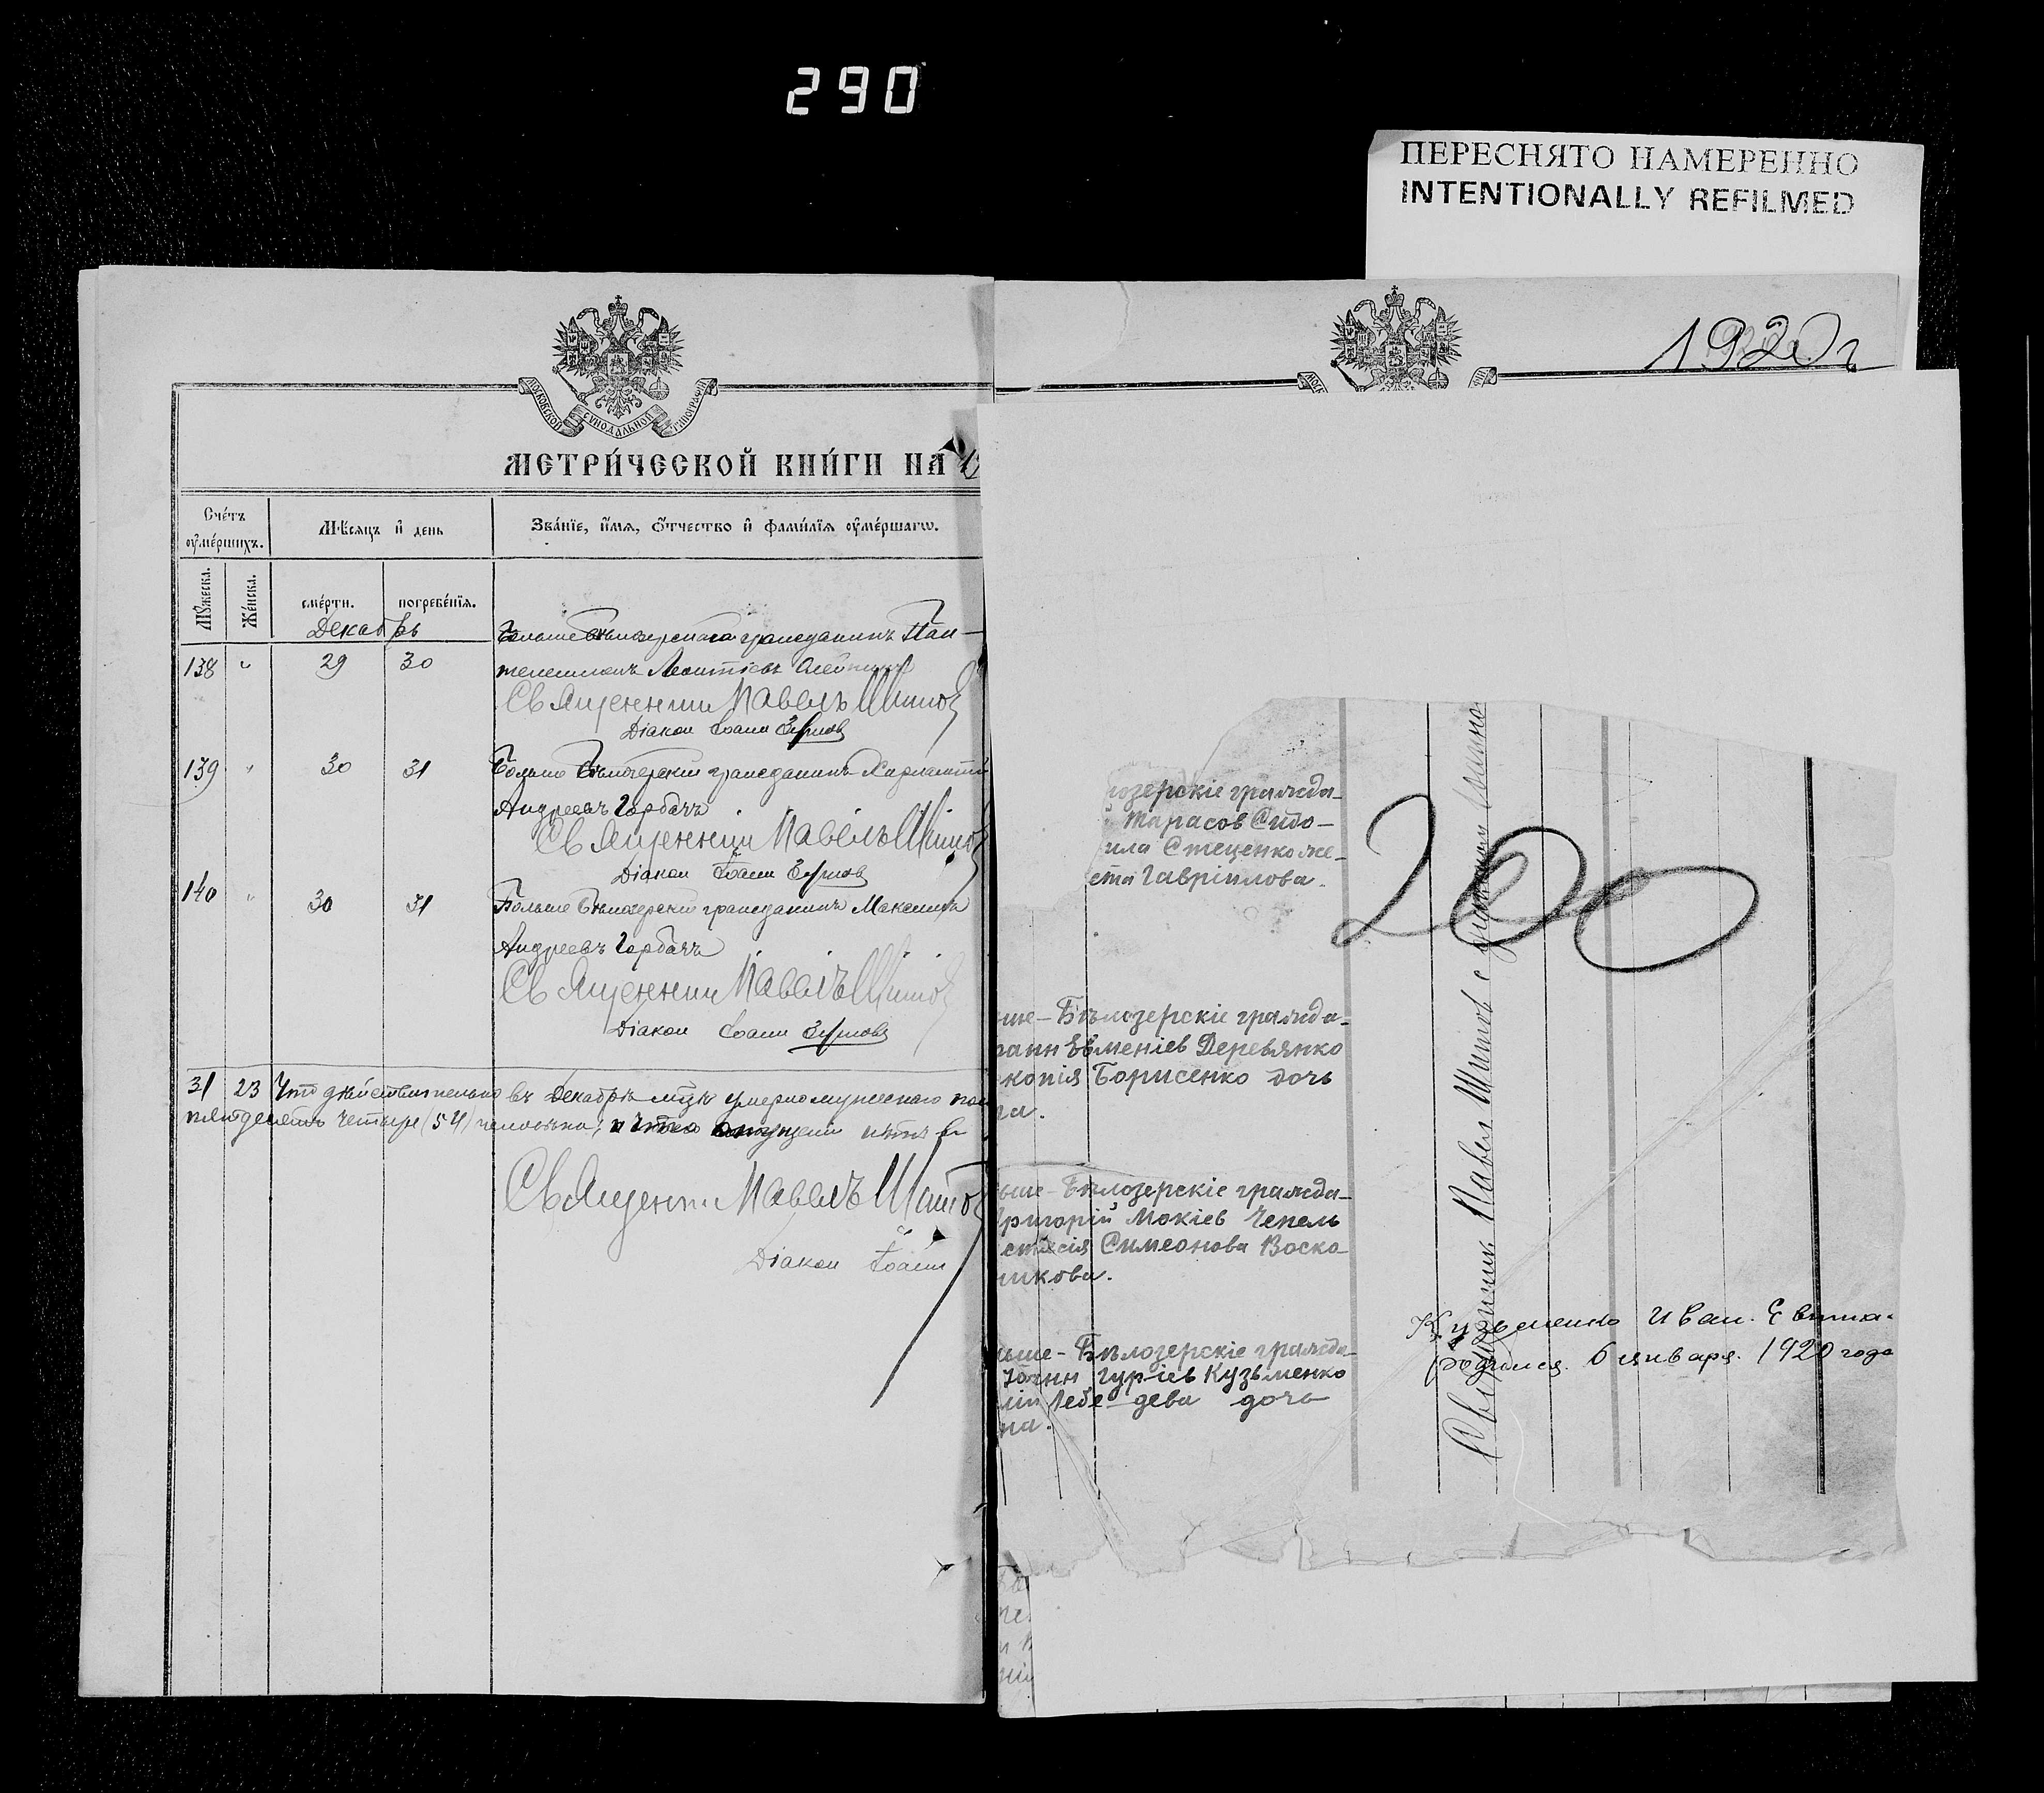 290
ПЕРЕСНЯТО НАМЕРЕННО
INTENTIONALLY REFILMED
1920 г
МОСКОВСКОЙ СѴНОДАЛЬНОЙ ТИПОГРАФІИ
МЕТРИ́ЧЕСКОЙ КНИ́ГИ НА
Сче́тъ ᲂу҆ме́ршихъ.
Мѣ́сяцъ и҆ день
Зва́нїе, и҆́мѧ, ѻ҆́тчество и҆ фами́лїѧ ᲂу҆ме́ршагѡ.
Мꙋ́жеска.
Же́нска.
сме́рти.
погребе́нїѧ.
Декабрь
138 " 29 30 гражданинъ Пан-
телеимонъ Леонтіевъ
Священник Павелъ Шипов
Діакон Іоанн
139 " 30 31 Больше Бѣлозерскій гражданинъ
Андреевъ Горбачъ
Священник Павелъ Шипов
Діакон Іоанн
140 " 30 31 Больше Бѣлозерскій гражданинъ Максимъ
Андреевъ Горбачъ
Священник Павелъ Шипов
Діакон Іоанн
31 23 Что дѣйствительно въ Декабрѣ м-цѣ умерло мужескаго
пятьдесятъ четыре (54) человѣка; нѣтъ
Священник Павелъ Шипов
Діакон Іоанн
озерскіе гражда-
Тарасов Сидо-
ила Стеценко же-
Гавріилова.
200
ше-Бѣлозерскіе гражда-
Евменіев Деревянко
копія Борисенко дочь
ьше-Бѣлозерскіе гражда-
Григорій Мокіев Чепель
стасія Симеонова Воско-
никова.
льше-Бѣлозерскіе гражда-
Іоанн Гуріев Кузьменко
Лебе-дева дочь
на.
Священник Павел Шипов с діаконом
Кузьменко Иван.
родился 6 января 1920 года